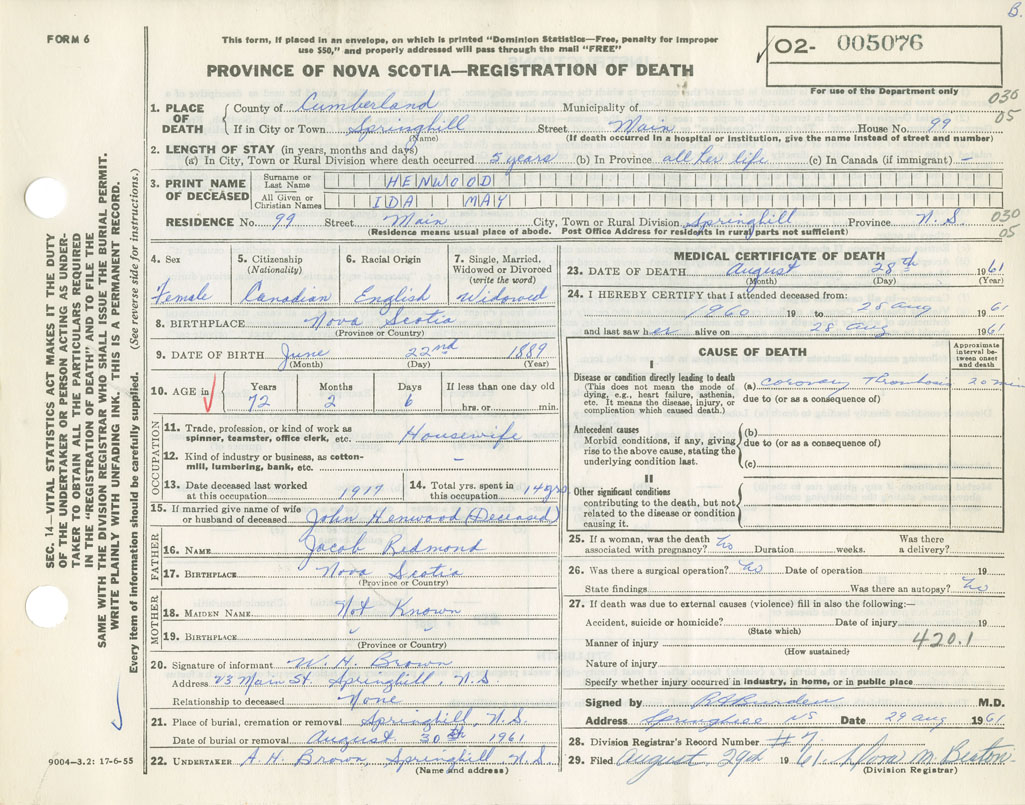 B.
FORM 6
This form, if placed in an envelope, on which is printed "Dominion Statistics—Free, penalty for improper
use $50," and properly addressed will pass through the mail "FREE"
PROVINCE OF NOVA SCOTIA—REGISTRATION OF DEATH
✓ 02- 005076
For use of the Department only
030
05
1. PLACE OF DEATH
County of Cumberland Municipality of
If in City or Town Springhill Street Main House No. 99
(Name) (If death occurred in a hospital or institution, give the name instead of street and number)
2. LENGTH OF STAY (in years, months and days)
(a) In City, Town or Rural Division where death occurred 5 years (b) In Province all her life (c) In Canada (if immigrant) -
3. PRINT NAME OF DECEASED
Surname or Last Name HENWOOD
All Given or Christian Names IDA MAY
RESIDENCE No. 99 Street Main City, Town or Rural Division Springhill Province N.S
(Residence means usual place of abode. Post Office Address for residents in rural parts not sufficient)
030
05
4. Sex
Female
5. Citizenship
(Nationality)
Canadian
6. Racial Origin
English
7. Single, Married,
Widowed or Divorced
(write the word)
Widowed
8. BIRTHPLACE Nova Scotia
(Province or Country)
9. DATE OF BIRTH June 22nd 1889
(Month) (Day) (Year)
10. AGE in ✓ Years Months Days If less than one day old
72 2 6 hrs. or min.
OCCUPATION
11. Trade, profession, or kind of work as
spinner, teamster, office clerk, etc. Housewife
12. Kind of industry or business, as cotton-
mill, lumbering, bank, etc. -
13. Date deceased last worked
at this occupation 1917
14. Total yrs. spent in
this occupation 14 yrs
15. If married give name of wife
or husband of deceased John Henwood (Deceased)
FATHER
16. NAME Jacob Redmond
17. BIRTHPLACE Nova Scotia
(Province or Country)
MOTHER
18. MAIDEN NAME Not Known
19. BIRTHPLACE
(Province or Country)
20. Signature of informant W. H. Brown
Address Main St. Springhill, N.S.
Relationship to deceased None
21. Place of burial, cremation or removal Springhill, N.S.
Date of burial or removal August 30th 1961
22. UNDERTAKER A. H. Brown, Springhill N.S
(Name and address)
MEDICAL CERTIFICATE OF DEATH
23. DATE OF DEATH August 28th 1961
(Month) (Day) (Year)
24. I HEREBY CERTIFY that I attended deceased from:
1960 19 to 28 aug 1961
and last saw her alive on 28 aug 1961
CAUSE OF DEATH
Approximate
interval be-
tween onset
and death
I
Disease or condition directly leading to death
(This does not mean the mode of
dying, e.g., heart failure, asthenia,
etc. It means the disease, injury, or
complication which caused death.)
(a) coronary Thrombosis 20 min
due to (or as a consequence of)
Antecedent causes
Morbid conditions, if any, giving
rise to the above cause, stating the
underlying condition last.
(b)
due to (or as a consequence of)
(c)
II
Other significant conditions
contributing to the death, but not
related to the disease or condition
causing it.
25. If a woman, was the death
associated with pregnancy? No Duration weeks. Was there
a delivery?
26. Was there a surgical operation? No Date of operation 19
State findings Was there an autopsy? No
27. If death was due to external causes (violence) fill in also the following:—
Accident, suicide or homicide? Date of injury 19
(State which)
Manner of injury 420.1
(How sustained)
Nature of injury
Specify whether injury occurred in industry, in home, or in public place
Signed by Burden M.D.
Address Springhill NS Date 29 aug 1961
28. Division Registrar's Record Number #7
29. Filed August, 29th 1961
(Division Registrar)
SEC. 14—VITAL STATISTICS ACT MAKES IT THE DUTY
OF THE UNDERTAKER OR PERSON ACTING AS UNDER-
TAKER TO OBTAIN ALL THE PARTICULARS REQUIRED
IN THE "REGISTRATION OF DEATH" AND TO FILE THE
SAME WITH THE DIVISION REGISTRAR WHO SHALL ISSUE THE BURIAL PERMIT.
WRITE PLAINLY WITH UNFADING INK. THIS IS A PERMANENT RECORD.
Every item of information should be carefully supplied. (See reverse side for instructions.)
9004-3.2: 17-6-55